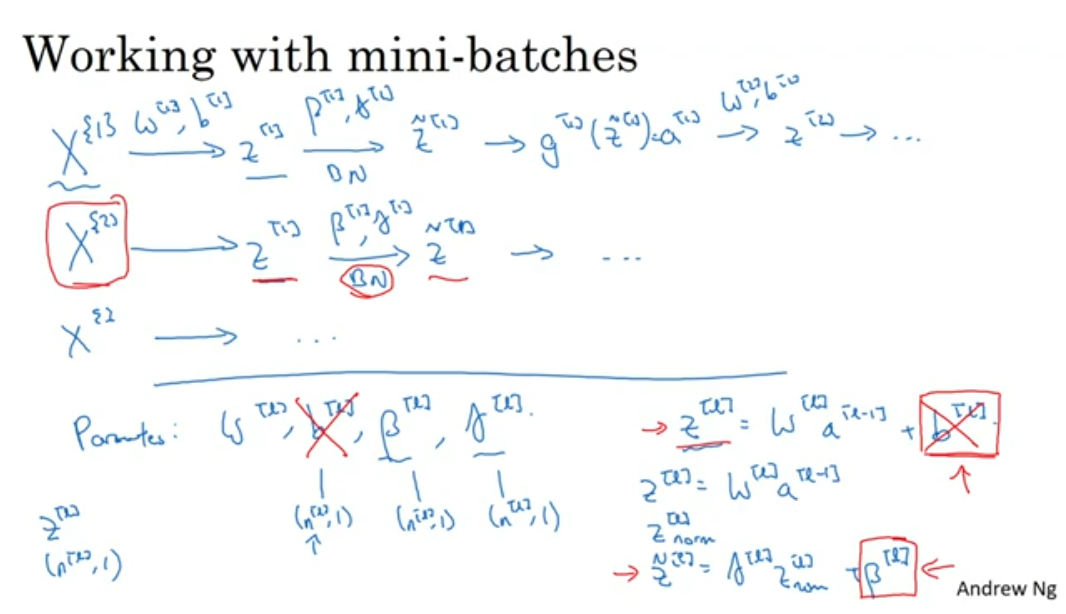 Working with mini-batches
X^{1} → W^[1], b^[1] z^[1] → β^[1], γ^[1] BN z̃^[1] → g^[1](z̃^[1]) = a^[1] → W^[2], b^[2] z^[2] → ...
X^{2} → z^[1] → β^[1], γ^[1] BN z̃^[1] → ...
X^{3} → ...
Parameters: W^[l], b^[l], β^[l], γ^[l].
(n^[l], 1) (n^[l], 1) (n^[l], 1)
z^[l]
(n^[l], 1)
→ z^[l] = W^[l] a^[l-1] + b^[l].
z^[l] = W^[l] a^[l-1]
z^[l]_norm
→ z̃^[l] = γ^[l] z^[l]_norm + β^[l] ←
Andrew Ng